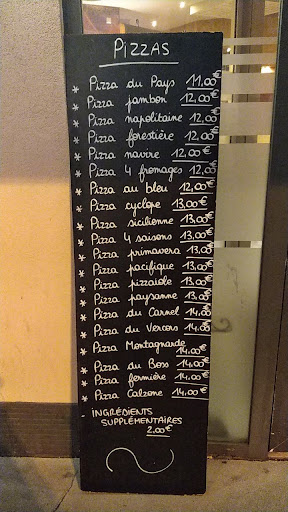 PIZZAS
* Pizza du Pays 11,00€
* Pizza jambon 12,00€
* Pizza napolitaine 12,00€
* Pizza forestière 12,00€
* Pizza navire 12,00€
* Pizza 4 fromages 12,00€
* Pizza au bleu 12,00€
* Pizza cyclope 13,00€
* Pizza sicilienne 13,00€
* Pizza 4 saisons 13,00€
* Pizza primavera 13,00€
* Pizza pacifique 13,00€
* Pizza pizzaiole 13,00€
* Pizza paysanne 13,00€
* Pizza du Carnel 14,00€
* Pizza du Vercors 14,00€
* Pizza Montagnarde
14,00€
* Pizza du Boss 14,00€
* Pizza fermière 14,00€
* Pizza Calzone 14,00€
- INGRÉDIENTS
SUPPLÉMENTAIRES
2,00€